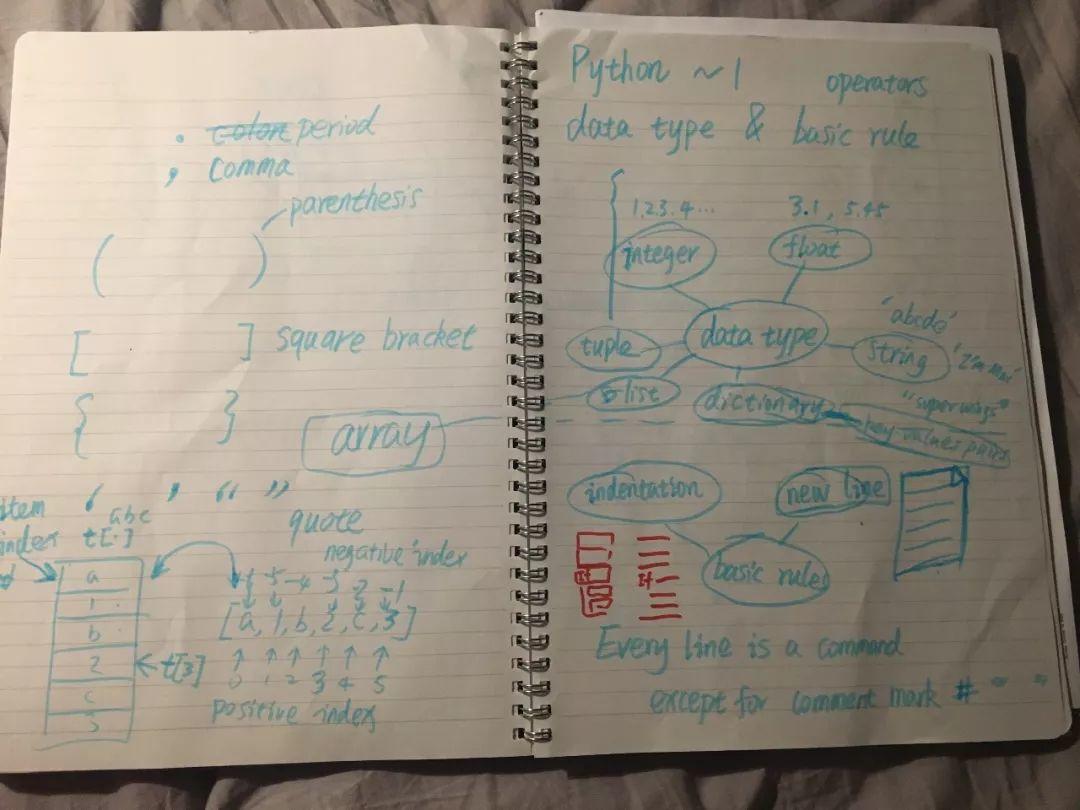 . colon period
, comma
parenthesis
( )
[ ] square bracket
{ }
array
‘ ’ “ ”
quote
item
index
abc
t[·]
a
1
b
2
c
3
t[3]
negative index
-5 -4 -3 -2 -1
[a, 1, b, 2, c, 3]
0 1 2 3 4 5
positive index
Python ~1 operators
data type & basic rule
1.2.3.4... 3.1, 5.45
integer float
data type
tuple
list
dictionary
string
'abcde'
"superwings"
key values pairs
indentation
new line
basic rules
Every line is a command
except for comment mark # " "